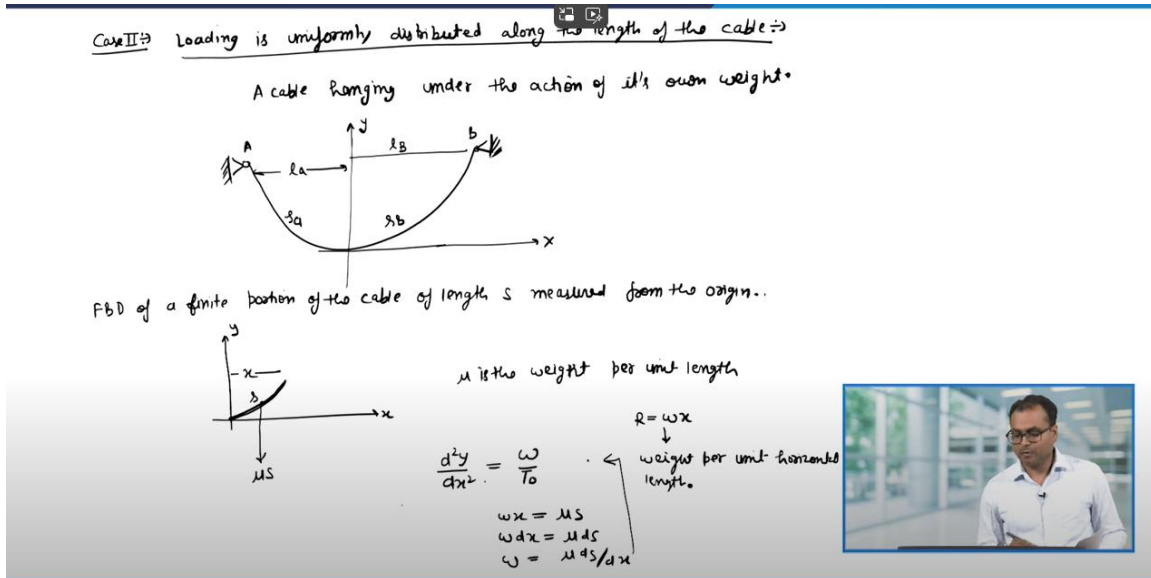 Case II:→ Loading is uniformly distributed along the length of the cable:→
A cable hanging under the action of it's own weight.
y
A
lB
B
la
sa
sb
x
FBD of a finite portion of the cable of length s measured from the origin..
y
x
s
x
μs
μ is the weight per unit length
R = ωx
↓
d²y/dx² = ω/T₀
weight per unit horizontal
length.
ωx = μs
ωdx = μds
ω = μds/dx